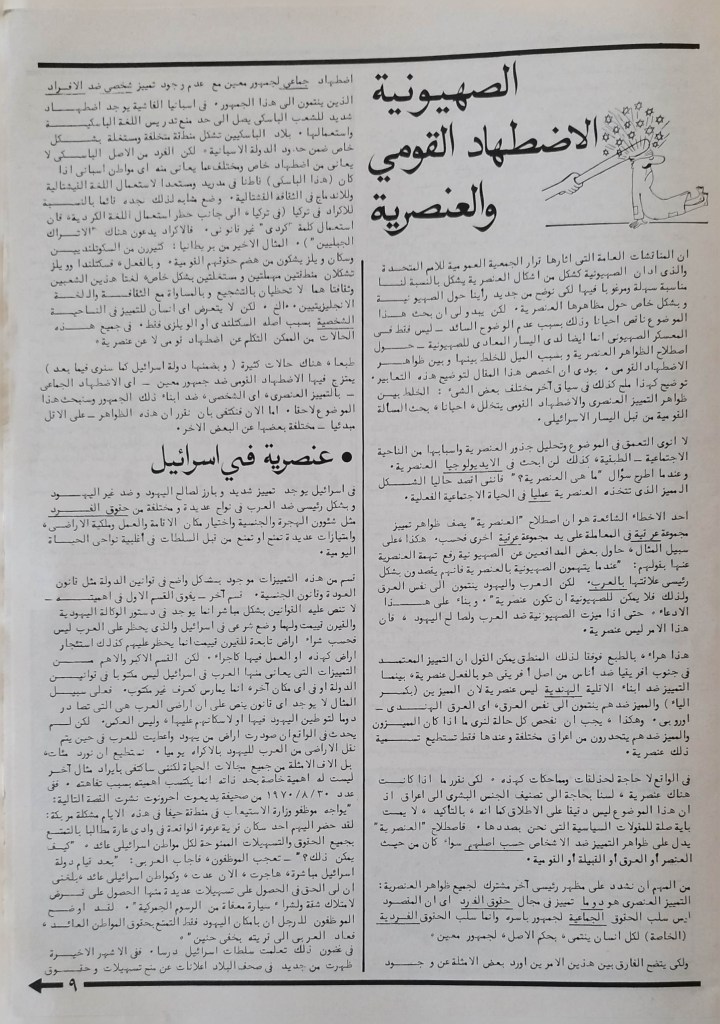 الصهيونية
الاضطهاد القومي
والعنصرية
ان المناقشات العامة التي اثارها قرار الجمعية العمومية للامم المتحدة
والذى ادان الصهيونية كشكل من اشكال العنصرية يشكل بالنسبة لنا
مناسبة سهلة ومرغوبا فيها لكي نوضح من جديد رأينا حول الصهيونية
وبشكل خاص حول مظاهرها العنصرية • لكن يبدو لى ان بحث هذا
الموضوع ناقص احيانا وذلك بسبب عدم الوضوح السائد – ليس فقط فى
المعسكر الصهيوني انما ايضا لدى اليسار المعادى للصهيونية – حول
اصطلاح الظواهر العنصرية وبسبب الميل للخلط بينها وبين ظواهر
الاضطهاد القومى • بودى ان اخصص هذا المقال لتوضيح هذه التعابير •
توضيح كهذا ملح كذلك فى سياق آخر مختلف بعض الشى : الخلط بين
ظواهر التمييز العنصرى والاضطهاد القومى يتخلل احيانا بحث المسألة
القومية من قبل اليسار الاسرائيلى •
لا انوى التعمق فى الموضوع وتحليل جذور العنصرية واسبابها من الناحية
الاجتماعية – الطبقية كذلك لن ابحث فى الايديولوجيا العنصرية •
وعندما اطرح سؤال "ما هى العنصرية ؟" فاننى اقصد حاليا الشكل
المميز الذى تتخذه العنصرية عمليا فى الحياة الاجتماعية الفعلية •
احد الاخطاء الشائعة هو ان اصطلاح "العنصرية" يصف ظواهر تمييز
مجموعة عرقية فى المعاملة على يد مجموعة عرقية اخرى فحسب • هكذا على
سبيل المثال حاول بعض المدافعين عن الصهيونية رفع تهمة العنصرية
عنها بقولهم : "عندما يتهمون الصهيونية بالعنصرية فانهم يقصدون بشكل
رئيسى علاقتها بالعرب • لكن العرب واليهود ينتمون الى نفس العرق
ولذلك فلا يمكن للصهيونية ان تكون عنصرية" • وبناء على هذا
الادعاء حتى اذا ميزت الصهيونية ضد العرب ولصالح اليهود فان
هذا الامر ليس عنصرية •
هذا هراء بالطبع فوفقا لذلك المنطق يمكن القول ان التمييز المعتمد
فى جنوب أفريقيا ضد أناس من اصل أفريقى هو بالفعل عنصرية بينما
التمييز ضد ابناء الاقلية الهندية ليس عنصرية لان المميزين ( بكسر
الياء ) والمميز ضدهم ينتمون الى نفس العرق – اى العرق الهندى –
اوروبى • وهكذا يجب ان نفحص كل حالة لنرى ما اذا كان المميزون
والمميز ضدهم يتحدرون من اعراق مختلفة وعندها فقط نستطيع تسمية
ذلك عنصرية •
فى الواقع لا حاجة لحذلقات ومماحكات كهذه • لكى نقرر ما اذا كانت
هناك عنصرية لسنا بحاجة الى تصنيف الجنس البشرى الى اعراق اذ
ان هذا الموضوع ليس دقيقا على الاطلاق كما انه بالتأكيد لا يمت
باية صلة للمقولات السياسية التى نحن بصددها • فاصطلاح "العنصرية"
يدل على ظواهر التمييز ضد الاشخاص حسب اصلهم سواء كان من حيث
العنصر أو العرق أو القبيلة أو القومية •
من المهم ان نشدد على مظهر رئيسى آخر مشترك لجميع ظواهر العنصرية :
التمييز العنصرى هو دوما تمييز فى مجال حقوق الفرد اى ان المقصود
ليس سلب الحقوق الجماعية لجمهور باسره وانما سلب الحقوق الفردية
( الخاصة ) لكل انسان ينتمى بحكم الاصل لجمهور معين •
ولكى يتضح الفارق بين هذين الامرين اورد بعض الامثلة عن وجود
اضطهاد جماعى لجمهور معين مع عدم وجود تمييز شخصى ضد الافراد
الذين ينتمون الى هذا الجمهور • فى اسبانيا الفاشية يوجد اضطهاد
شديد للشعب الباسكى يصل الى حد منع تدريس اللغة الباسكية
واستعمالها • بلاد الباسكيين تشكل منطقة متخلفة ومستغلة بشكل
خاص ضمن حدود الدولة الاسبانية • لكن الفرد من الاصل الباسكى لا
يعانى من اضطهاد خاص ومختلف عما يعانى منه اى مواطن اسبانى اذا
كان ( هذا الباسكى ) قاطنا فى مدريد ومستعدا لاستعمال اللغة القشتالية
وللاندماج فى الثقافة القشتالية • وضع مشابه لذلك نجده قائما بالنسبة
للاكراد فى تركيا ( فى تركيا الى جانب حظر استعمال اللغة الكردية فان
استعمال كلمة "كردى" غير قانونى • فالاكراد يدعون هناك "الاتراك
الجبليين" ) • المثال الاخير من بريطانيا : كثيرون من السكوتلنديين
وسكان ويلز يشكون من هضم حقوقهم القومية • وبالفعل فسكتلندا وويلز
تشكلان منطقتين مهملتين ومستغلتين بشكل خاص لغتا هذين الشعبين
وثقافتا هما لا تحظيان بالتشجيع و بالمساواة مع الثقافة واللغة
الانجليزيتين • • الخ • لكن لا يتعرض اى انسان للتمييز فى الناحية
الشخصية بسبب أصله السكتلندى او الويلزى فقط • فى جميع هذه
الحالات من الممكن التكلم عن اضطهاد قومى لا عن عنصرية •
طبعا هناك حالات كثيرة ( وبضمنها دولة اسرائيل كما سنرى فيما بعد )
يمتزج فيها الاضطهاد القومى ضد جمهور معين – اى الاضطهاد الجماعى
– بالتمييز العنصرى اى الشخصى ضد ابناء ذلك الجمهور وسنبحث هذا
الموضوع لاحقا • اما الان فنكتفى بان نقرر ان هذه الظواهر – على الاقل
مبدئيا – مختلفة بعضها عن البعض الاخر •
• عنصرية في اسرائيل
فى اسرائيل يوجد تمييز شديد و بارز لصالح اليهود و ضد غير اليهود
وبشكل رئيسى ضد العرب فى نواح عديدة و مختلفة من حقوق الفرد
مثل شئون الهجرة والجنسية واختيار مكان الاقامة والعمل وملكية الاراضى
وامتيازات عديدة تمنح او تمنع من قبل السلطات فى أغلبية نواحى الحياة
اليومية •
قسم من هذه التمييزات موجود بشكل واضح فى قوانين الدولة مثل قانون
العودة وقانون الجنسية • قسم آخر – يفوق القسم الاول فى اهميته –
لا تنص عليه القوانين بشكل مباشر انما يوجد فى دستور الوكالة اليهودية
والقيرن قييمت ولهما وضع شرعى فى اسرائيل والذى يحظر على العرب ليس
فحسب شراء اراض تابعة للقيرن قييمت انما يحظر عليهم كذلك استئجار
اراض كهذه او العمل فيها كأجراء • لكن القسم الاكبر والاهم من
التمييزات التى يعانى منها العرب فى اسرائيل ليس مكتوبا فى قوانين
الدولة او فى اى مكان آخر انما يمارس كعرف غير مكتوب • فعلى سبيل
المثال لا يوجد اى قانون ينص على ان اراضى العرب هى التى تصادر
دوما لتوطين اليهود فيها او اسكانهم عليها وليس العكس • لكن لم
يحدث فى الواقع ان صودرت اراض من يهود واعطيت للعرب فى حين يتم
نقل الاراضى من العرب لليهود بالاكراه يوميا • نستطيع ان نورد مئات
بل الاف الامثلة من جميع مجالات الحياة لكننى ساكتفى بايراد مثال آخر
ليست له اهمية خاصة بحد ذاته انما يكتسب اهميته بسبب تفاهته • ففى
عدد ١٩٧٠/٨/٣٠ من صحيفة يديعوت احرونوت نشرت القصة التالية :
"يواجه موظفو وزارة الاستيعاب فى منطقة حيفا فى هذه الايام مشكلة مربكة :
لقد حضر اليهم احد سكان قرية عرعرة الواقعة فى وادى عارة مطالبا بالتمتع
بجميع الحقوق والتسهيلات الممنوحة لكل مواطن اسرائيلى عائد • "كيف
يمكن ذلك ؟" – تعجب الموظفون فاجاب العربى : "بعد قيام دولة
اسرائيل مباشرة هاجرت • الان عدت وكمواطن اسرائيلى عائد يلغنى
ان لى الحق فى الحصول على تسهيلات عديدة منها الحصول على قرض
لامتلاك شقة ولشراء سيارة معفاة من الرسوم الجمركية" • لقد اوضح
الموظفون للرجل ان بامكان اليهود فقط التمتع بحقوق المواطن العائد
فعاد العربى الى قريته بخفى حنين" •
فى غضون ذلك تعلمت سلطات اسرائيل درسا • ففى الاشهر الاخيرة
ظهرت من جديد فى صحف البلاد اعلانات عن منح تسهيلات و حقوق
٩